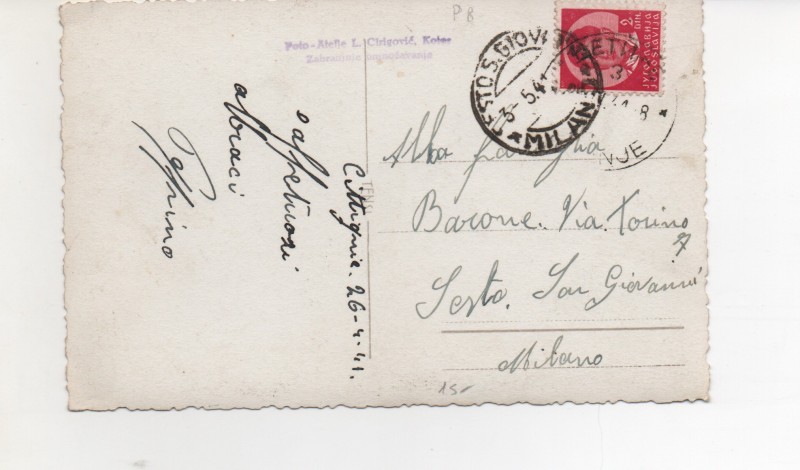 P 8
Foto-Atelje L. Cirigović, Kotor
Zabranjeno umnožavanje
2
DIN.
ЈУГОСЛАВИЈА
JUGOSLAVIJA
SESTO S. GIOVANNI
3-5.41
MILANO
CETINJE
3
8
NJE
Cettignie. 26-4-41.
affettuosi
abbraci
Alla famiglia
Barone. Via. Torino
7
Sesto. San Giovanni
Milano
15-